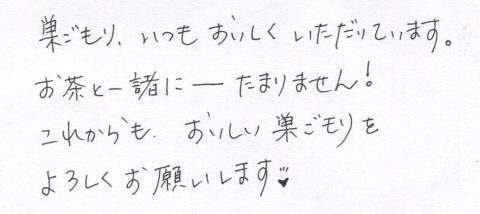 巣ごもり、いつもおいしくいただいています。
お茶と一諸に ー たまりません!
これからも、おいしい巣ごもりを
よろしくお願いします♥